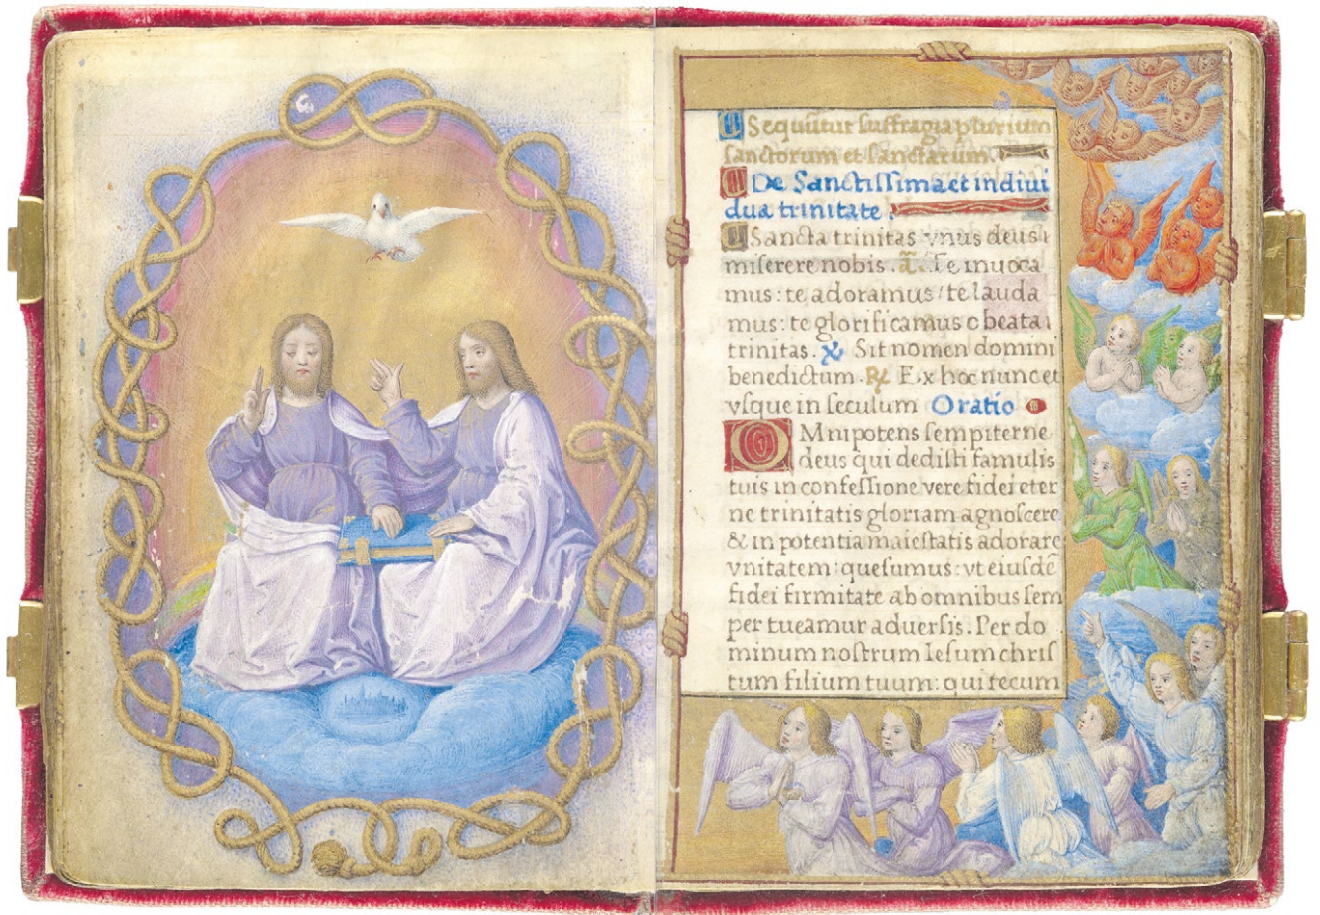 Sequũtur suffragia plurium
sanctorum et sanctarum.
De Sanctissima et indiui
dua trinitate.
Sancta trinitas vnus deus
miserere nobis. ã. Te inuoca
mus: te adoramus / te lauda
mus: te glorificamus o beata
trinitas. ℣ Sit nomen domini
benedictum. ℟ Ex hoc nunc et
vsque in seculum Oratio
OMnipotens sempiterne
deus qui dedisti famulis
tuis in confessione vere fidei eter
ne trinitatis gloriam agnoscere
& in potentia maiestatis adorare
vnitatem: quesumus: vt eiusdẽ
fidei firmitate ab omnibus sem
per tueamur aduersis. Per do
minum nostrum Iesum chris
tum filium tuum: qui tecum